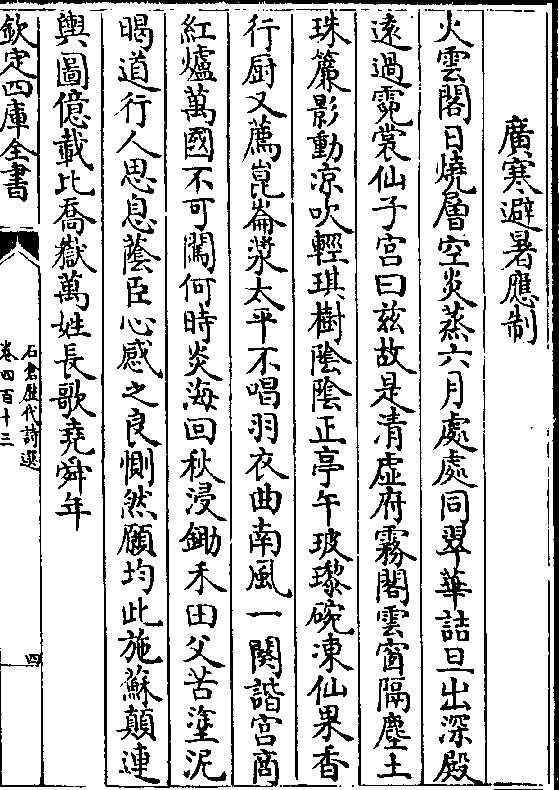 廣寒避暑應制
火雲閣日燒層空炎蒸六月處處同翠華詰旦出深殿
遠過霓裳仙子宮曰兹故是清虛府霧閣雲窗隔塵土
珠簾影動凉吹輕琪樹陰陰正亭午玻瓈碗凍仙果香
行厨又薦崑崙漿太平不唱羽衣曲南風一闋諧宫商
紅爐萬國不可闖何時炎海回秋浸鋤禾田父苦塗泥
暍道行人思息蔭臣心感之良惻然願均此施蘇顛連
輿圖億載比喬嶽萬姓長歌堯舜年
欽定四庫全書
石倉歴代詩選
卷四百十三
四